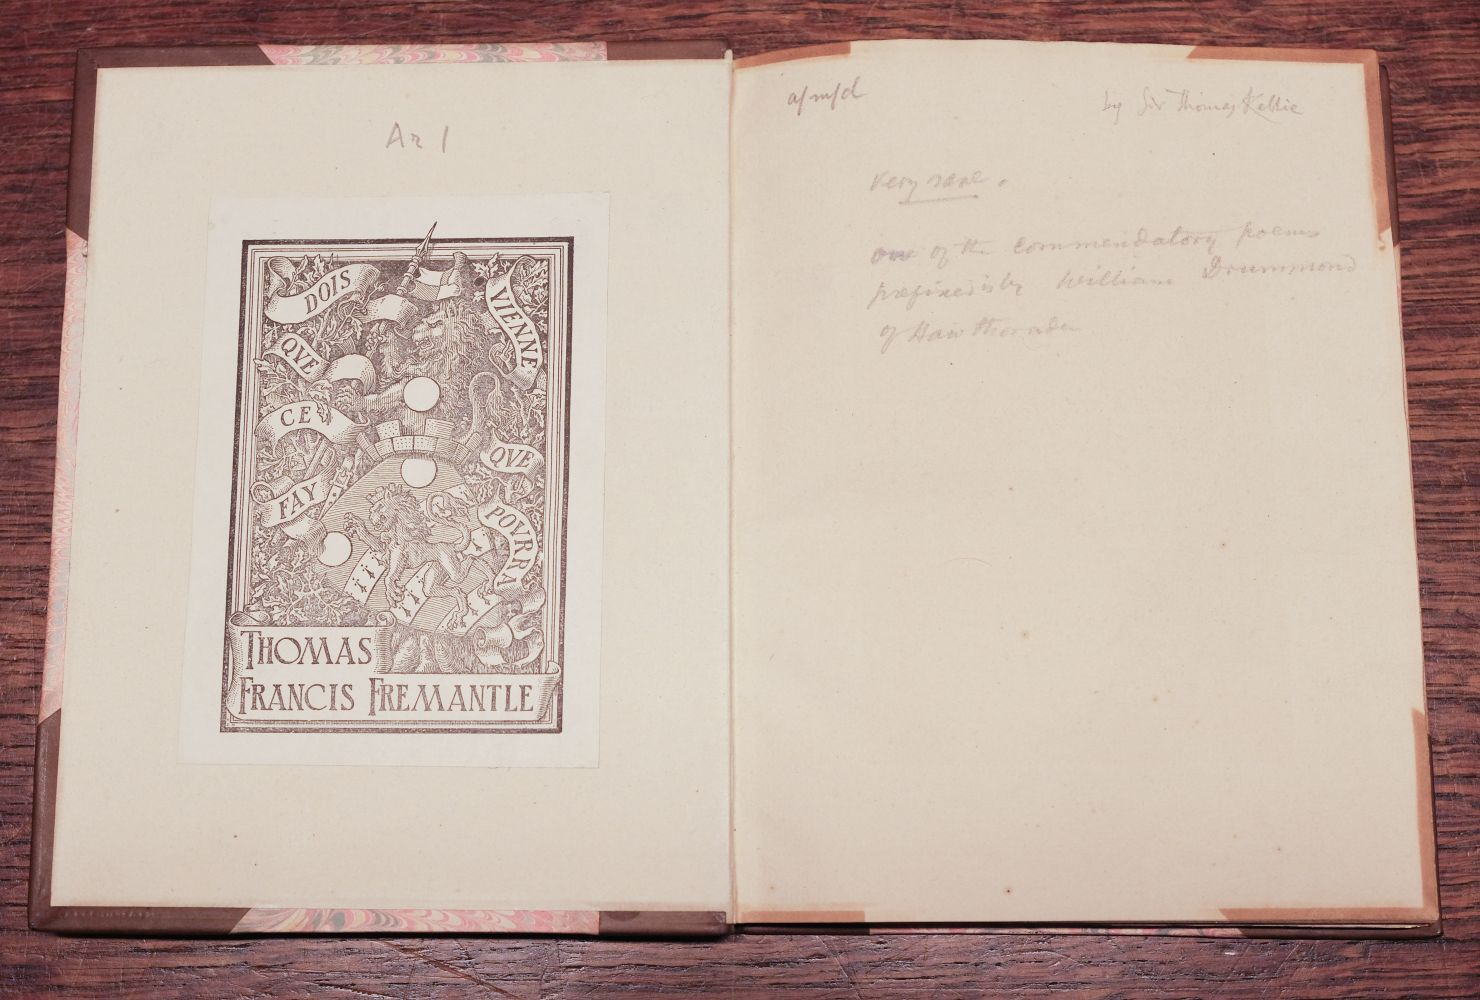 Ar 1
DOIS
VIENNE
QVE
CE
QVE
FAY
POVRRA
THOMAS
FRANCIS FREMANTLE
a/m/d
by Sir Thomas Kellie
very rare.
one of the commendatory poems
prefixed is by William Drummond
of Hawthornden